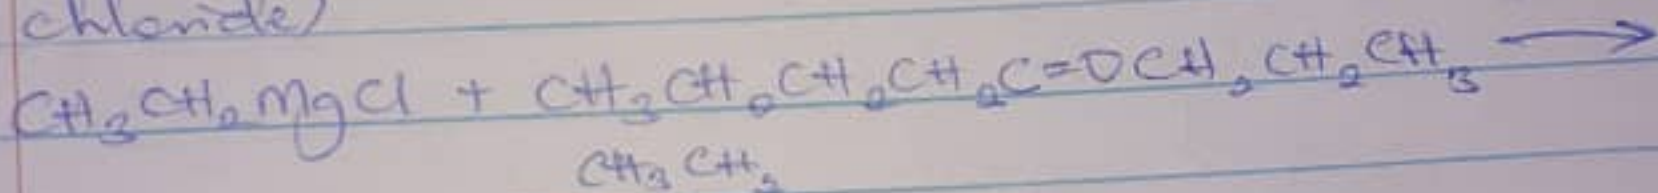 chloride)
CH₃CH₂MgCl + CH₃CH₂CH₂CH₂C=OCH₂CH₂CH₃ ⟶
CH₃CH₂